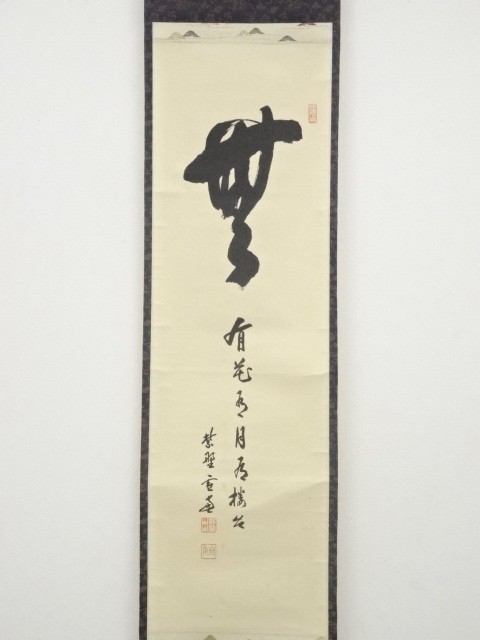 無
有花有月有楼台
紫野